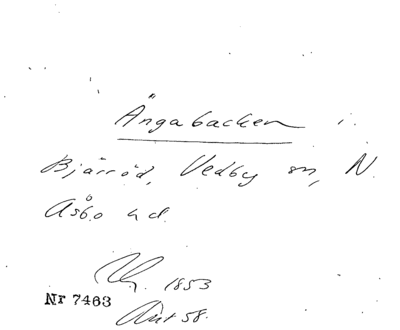 Ängabacken i
Bjärröd, Vedby sn, N.
Åsbo hd.
1853
Nr 7463
58.